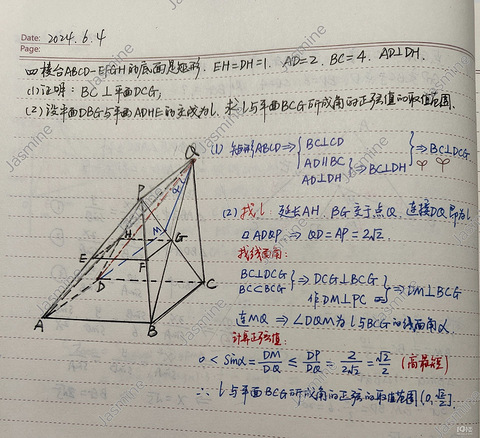 Date: 2024.6.4
Page:
四棱台ABCD-EFGH的底面是矩形. EH=DH=1. AD=2. BC=4. AD⊥DH.
(1)证明: BC⊥平面DCG;
(2)设平面DBG与平面ADHE的交线为l. 求l与平面BCG所成角的正弦值的取值范围.
(1) 矩形ABCD⇒{BC⊥CD
AD∥BC
AD⊥DH}⇒BC⊥DH}⇒BC⊥DCG
(2) 找l. 延长AH, BG交于点Q. 连接DQ即为l
▱ADQP ⇒ QD=AP=2√2.
找线面角:
BC⊥DCG
BC⊂BCG}⇒DCG⊥BCG
作DM⊥PC}⇒DM⊥BCG
连MQ ⇒ ∠DQM为l与BCG的线面角α
计算正弦值:
0<Sinα=DM/DQ≤DP/DQ=2/2√2=√2/2 (高最短)
∴ l与平面BCG所成角的正弦的取值范围(0,√2/2].
Q
P
α
H
M
G
E
F
D
C
A
B
Jasmine